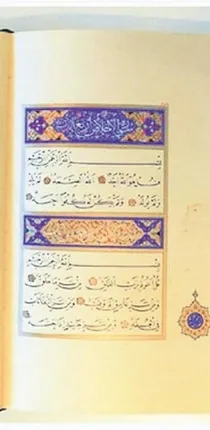 سورة الاخلاص
بسم الله الرحمن الرحيم
قل هو الله احد الله الصمد لم يلد
ولم يولد ولم يكن له كفوا احد
بسم الله الرحمن الرحيم
قل اعوذ برب الفلق من شر ما خلق
ومن شر غاسق اذا وقب ومن شر النفاثات
في العقد ومن شر حاسد اذا حسد